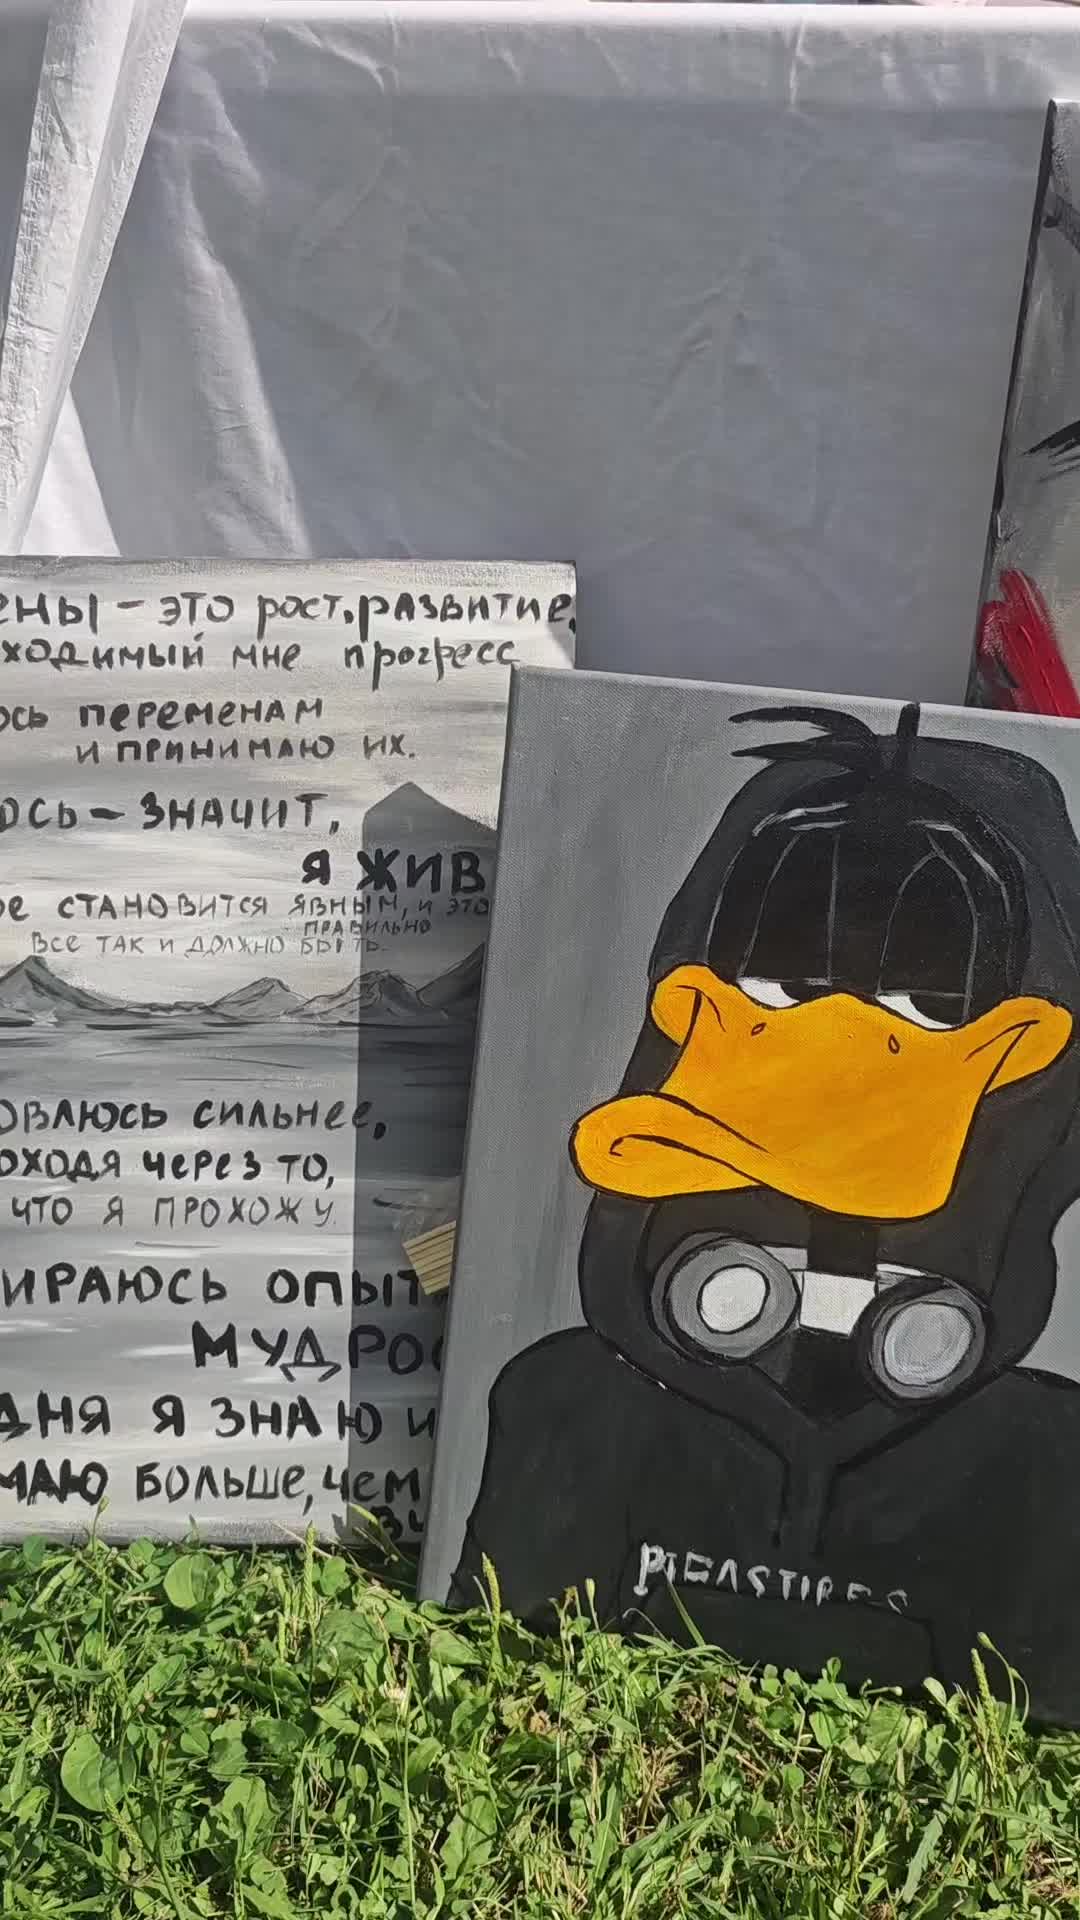 ены - это рост, развитие,
ходимый мне прогресс
ось переменам
и принимаю их.
ось - значит,
я жив
ое становится явным, и это
правильно
все так и должно быть.
овлюсь сильнее,
оходя через то,
что я прохожу.
ираюсь опыт
мудрос
дня я знаю и
маю больше, чем
вч